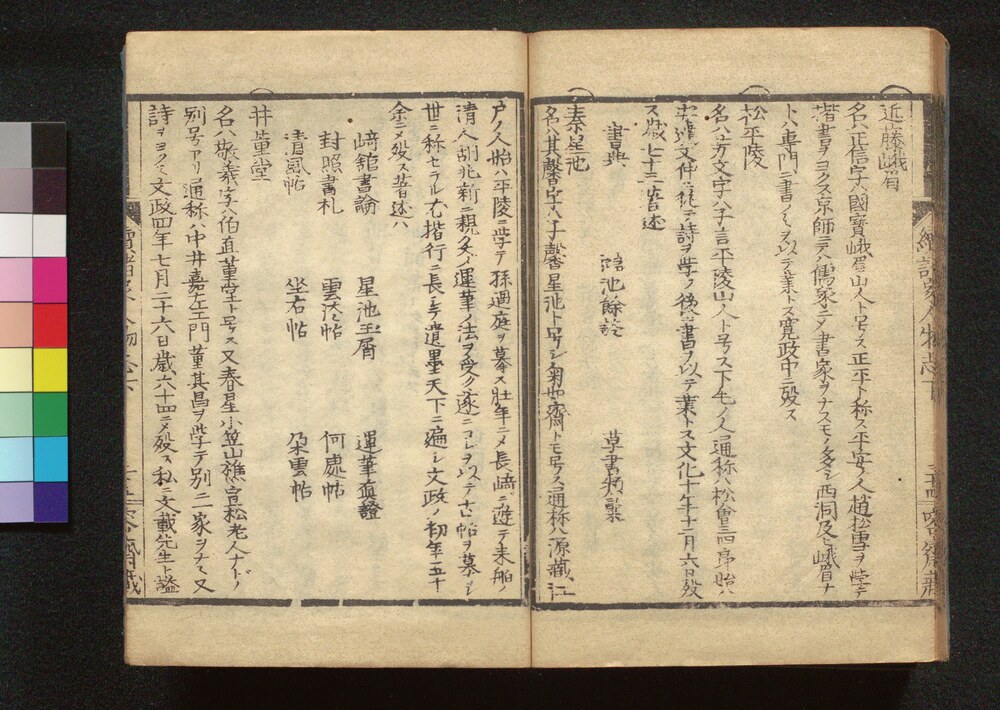 近藤峨眉
名ハ正信字ハ國寶峨眉山人ト号ス正平ト称ス平安ノ人趙松雪ヲ學テ
楷書ヲヨクス京師ニテハ儒家ニメ書家ヲナスモノ多シ西洞及ヒ峨眉ナ
トハ專門ニ書ノミヲ以テ業トス寛政中ニ歿ス
松平陵
名ハ芳文字ハ子言平陵山人ト号ス下毛ノ人通称ハ松會三四郎始ハ
文仲ニ從テ詩ヲ学ノ後書ヲ以テ業トス文化十年十二月六日歿
ス歳七十三著述
書典
鴻池餘談
草書類纂
秦星池
名ハ其馨字ハ子馨星池ト号シ菊如齋トモ号ス通称ハ源藏江
戸ノ人始ハ平陵ニ学テ孫過庭ヲ慕ス壮年ニメ長﨑ニ遊テ来舶ノ
清人胡兆新ニ親炙ノ運筆ノ法ヲ受ク遂ニコレヲ以テ古帖ヲ慕シ
世ニ称セラル尤楷行ニ長シテ遺墨天下ニ遍シ文政ノ初年五十
余ニメ歿ス著述ハ
﨑舘書論
星池玉屑
運筆直證
封照書札
雲法帖
何處帖
清風帖
坐右帖
朶雲帖
井董堂
名ハ敬義字ハ伯直董堂ト号ス又春星小笠山樵宣松老人ナトノ
別号アリ通称ハ中井嘉左エ門董其昌ヲ学テ別ニ一家ヲナス又
詩ヲヨクス文政四年七月二十六日歳六十四ニメ歿ス私ニ文載先生ト謚